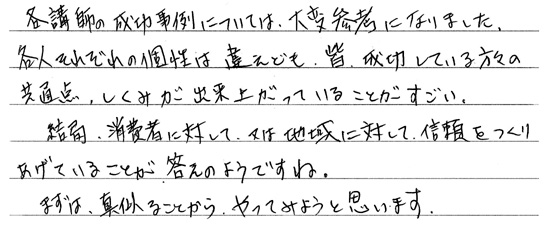 各講師の成功事例については、大変参考になりました。
各人それぞれの個性は違えども、皆、成功している方々の
共通点、しくみが出来上がっていることがすごい。
結局、消費者に対して、又は地域に対して、信頼をつくり
あげていることが答えのようですね。
まずは、真似ることから、やってみようと思います。